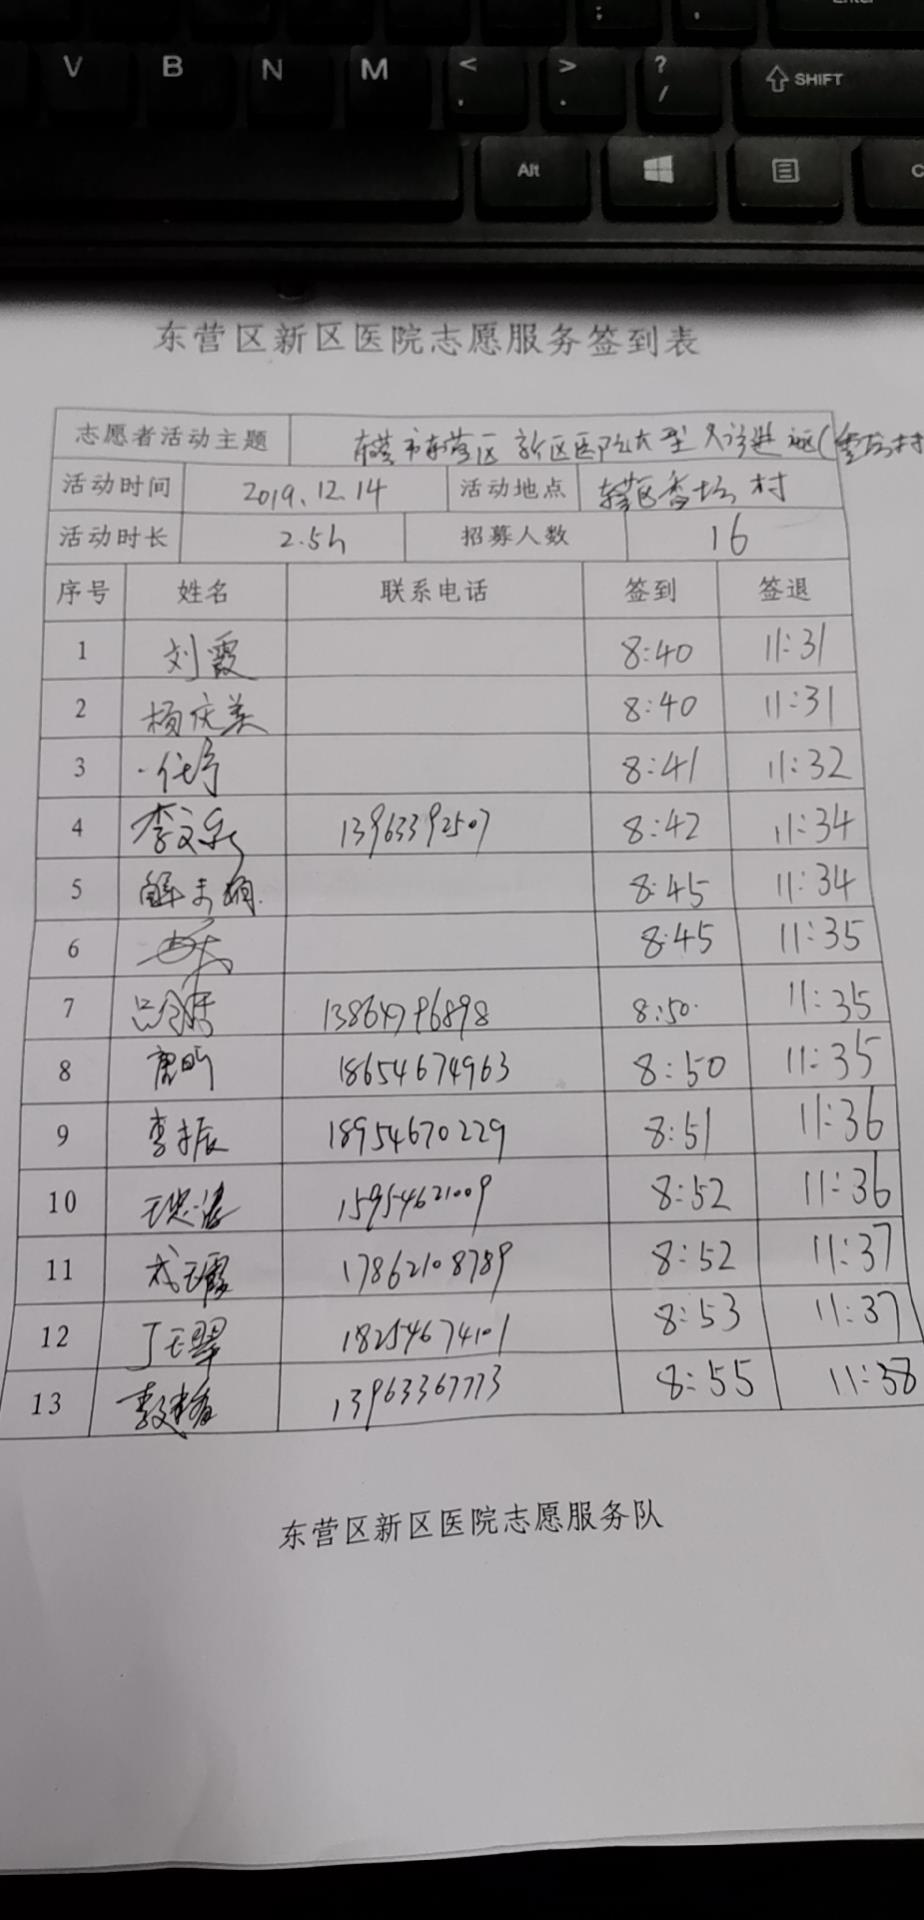 Enter
; .
V B N M < , > . ? / SHIFT
Alt
东营区新区医院志愿服务签到表
志愿者活动主题 东营市东营区新区医院大型义诊进社区(
活动时间 2019.12.14 活动地点 东营区 村
活动时长 2.5h 招募人数 16
序号 姓名 联系电话 签到 签退
1 刘霞 8:40 11:31
2 杨庆美 8:40 11:31
3 任婷 8:41 11:32
4 李文 13963392507 8:42 11:34
5 解 8:45 11:34
6 8:45 11:35
7 吕 13864796898 8:50 11:35
8 唐昕 18654674963 8:50 11:35
9 李振 18954670229 8:51 11:36
10 王 15954621009 8:52 11:36
11 17862108789 8:52 11:37
12 丁玉翠 18254674101 8:53 11:37
13 13963367773 8:55 11:38
东营区新区医院志愿服务队